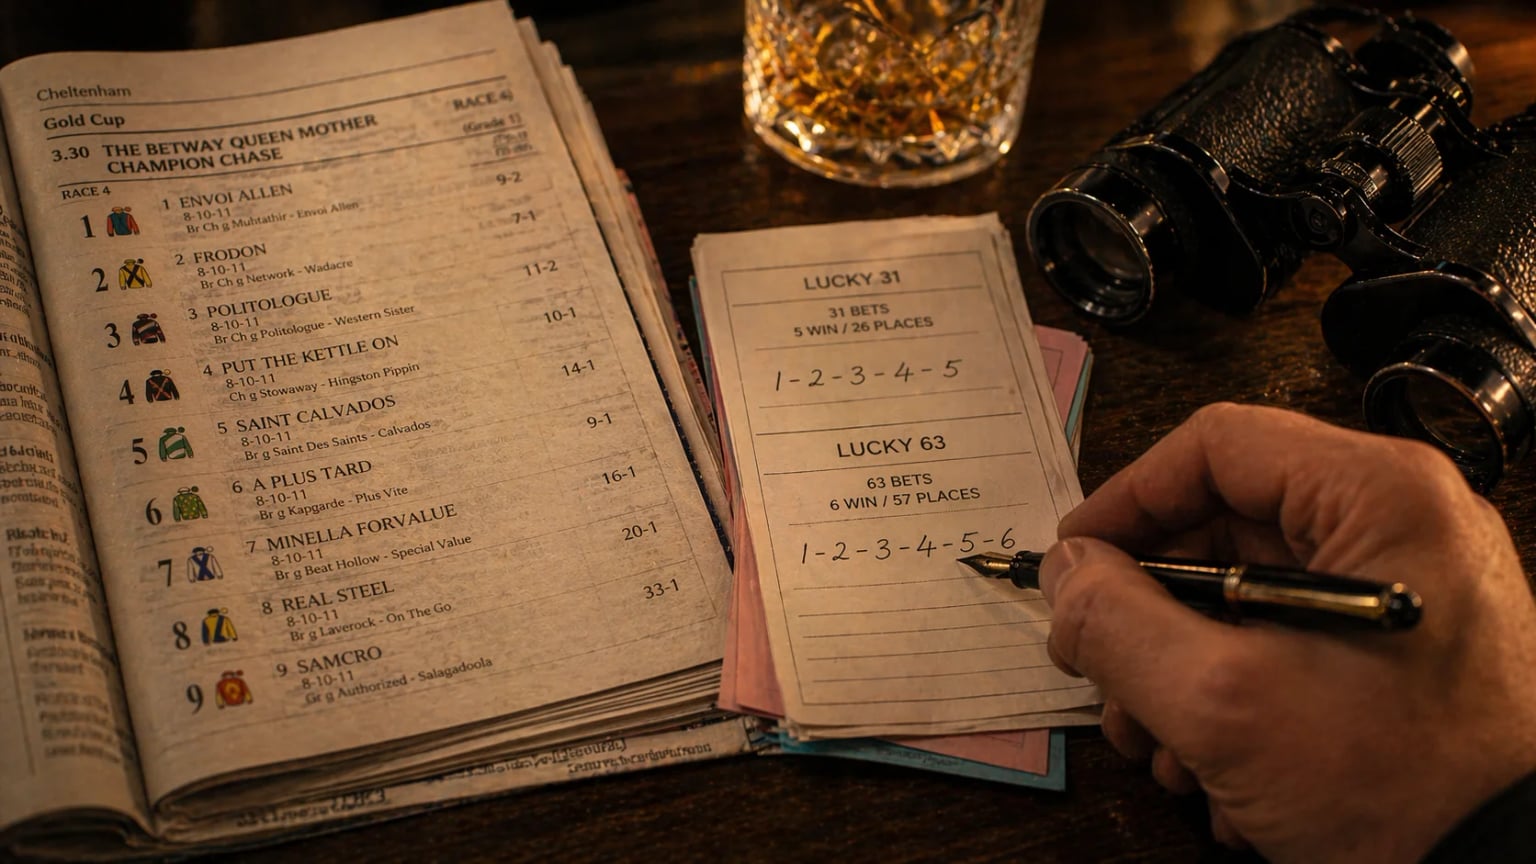 Cheltenham
Gold Cup
RACE 4)
3.30 THE BETWAY QUEEN MOTHER
CHAMPION CHASE
(Grade 1)
RACE 4
1 1 ENVOI ALLEN
9-2
8-10-11
Br Ch g Muhtathir - Envoi Allen
7-1
2 2 FRODON
8-10-11
Br Ch g Network - Wadacre
11-2
3 3 POLITOLOGUE
8-10-11
Br Ch g Politologue - Western Sister
10-1
4 4 PUT THE KETTLE ON
8-10-11
Ch g Stowaway - Hingston Pippin
14-1
5 5 SAINT CALVADOS
8-10-11
Br g Saint Des Saints - Calvados
9-1
6 6 A PLUS TARD
8-10-11
Br g Kapgarde - Plus Vite
16-1
7 7 MINELLA FORVALUE
8-10-11
Br g Beat Hollow - Special Value
20-1
8 8 REAL STEEL
8-10-11
Br g Laverock - On The Go
33-1
9 9 SAMCRO
8-10-11
Gr g Authorized - Salagadoola
LUCKY 31
31 BETS
5 WIN / 26 PLACES
1-2-3-4-5
LUCKY 63
63 BETS
6 WIN / 57 PLACES
1-2-3-4-5-6